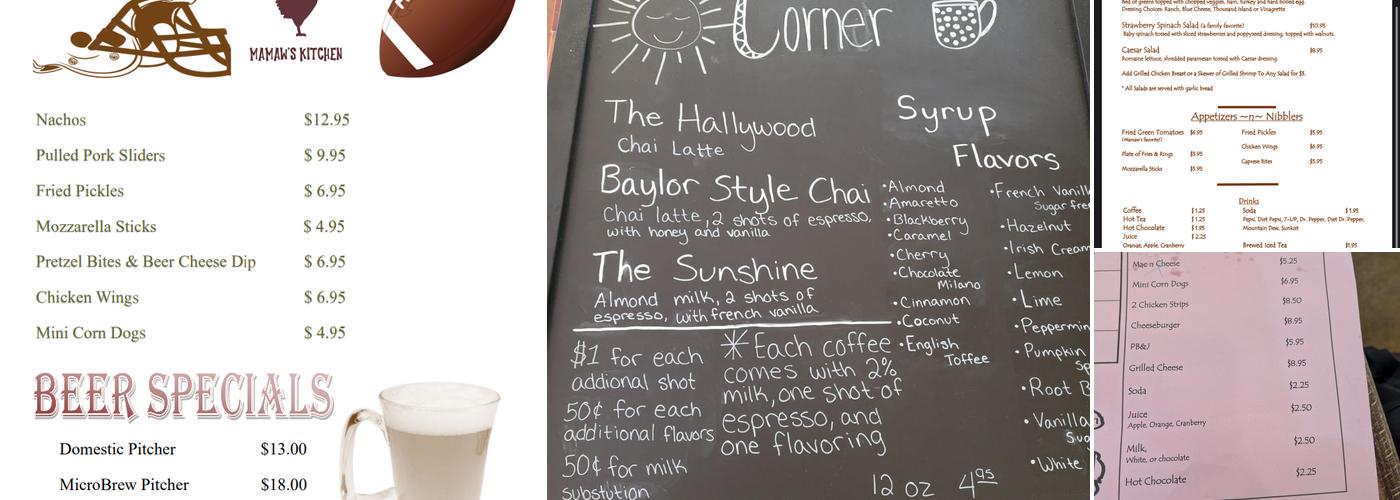 MAMAW'S KITCHEN
Nachos $12.95
Pulled Pork Sliders $ 9.95
Fried Pickles $ 6.95
Mozzarella Sticks $ 4.95
Pretzel Bites & Beer Cheese Dip $ 6.95
Chicken Wings $ 6.95
Mini Corn Dogs $ 4.95
BEER SPECIALS
Domestic Pitcher $13.00
MicroBrew Pitcher $18.00
Corner
The Hallywood
Chai Latte
Baylor Style Chai
Chai latte, 2 shots of espresso,
with honey and vanilla
The Sunshine
Almond milk, 2 shots of
espresso, with french vanilla
$1 for each
addional shot
50¢ for each
additional flavors
50¢ for milk
substution
* Each coffee
comes with 2%
milk, one shot of
espresso, and
one flavoring
12 oz 4.95
Syrup
Flavors
•Almond
•Amaretto
•Blackberry
•Caramel
•Cherry
•Chocolate
Milano
•Cinnamon
•Coconut
•English
Toffee
•French Vanill
Sugar free
•Hazelnut
•Irish Cream
•Lemon
•Lime
•Peppermin
•Pumpkin
Sp
•Root B
•Vanilla
Sug
•White
Bed of greens topped with chopped veggies, ham, turkey and hard boiled egg.
Dressing Choices: Ranch, Blue Cheese, Thousand Island or Vinagrette
Strawberry Spinach Salad (a family favorite) $10.95
Baby spinach tossed with sliced strawberries and poppyseed dressing, topped with walnuts.
Caesar Salad $8.95
Romaine lettuce, shredded parmesan tossed with Caesar dressing.
Add Grilled Chicken Breast or a Skewer of Grilled Shrimp To Any Salad for $5.
* All Salads are served with garlic bread
Appetizers ~n~ Nibblers
Fried Green Tomatoes $6.95
(Mamaw's favorite!)
Plate of Fries & Rings $5.95
Mozzarella Sticks $5.95
Fried Pickles $5.95
Chicken Wings $6.95
Caprese Bites $5.95
Drinks
Coffee $1.25
Hot Tea $1.25
Hot Chocolate $1.95
Juice $2.25
Orange, Apple, Cranberry
Soda $1.95
Pepsi, Diet Pepsi, 7-UP, Dr. Pepper, Diet Dr. Pepper,
Mountain Dew, Sunkist
Brewed Iced Tea $1.95
Mac n Cheese $5.25
Mini Corn Dogs $6.95
2 Chicken Strips $8.50
Cheeseburger $8.95
PB&J $5.95
Grilled Cheese $8.95
Soda $2.25
Juice $2.50
Apple, Orange, Cranberry
Milk, $2.50
White, or chocolate
Hot Chocolate $2.25